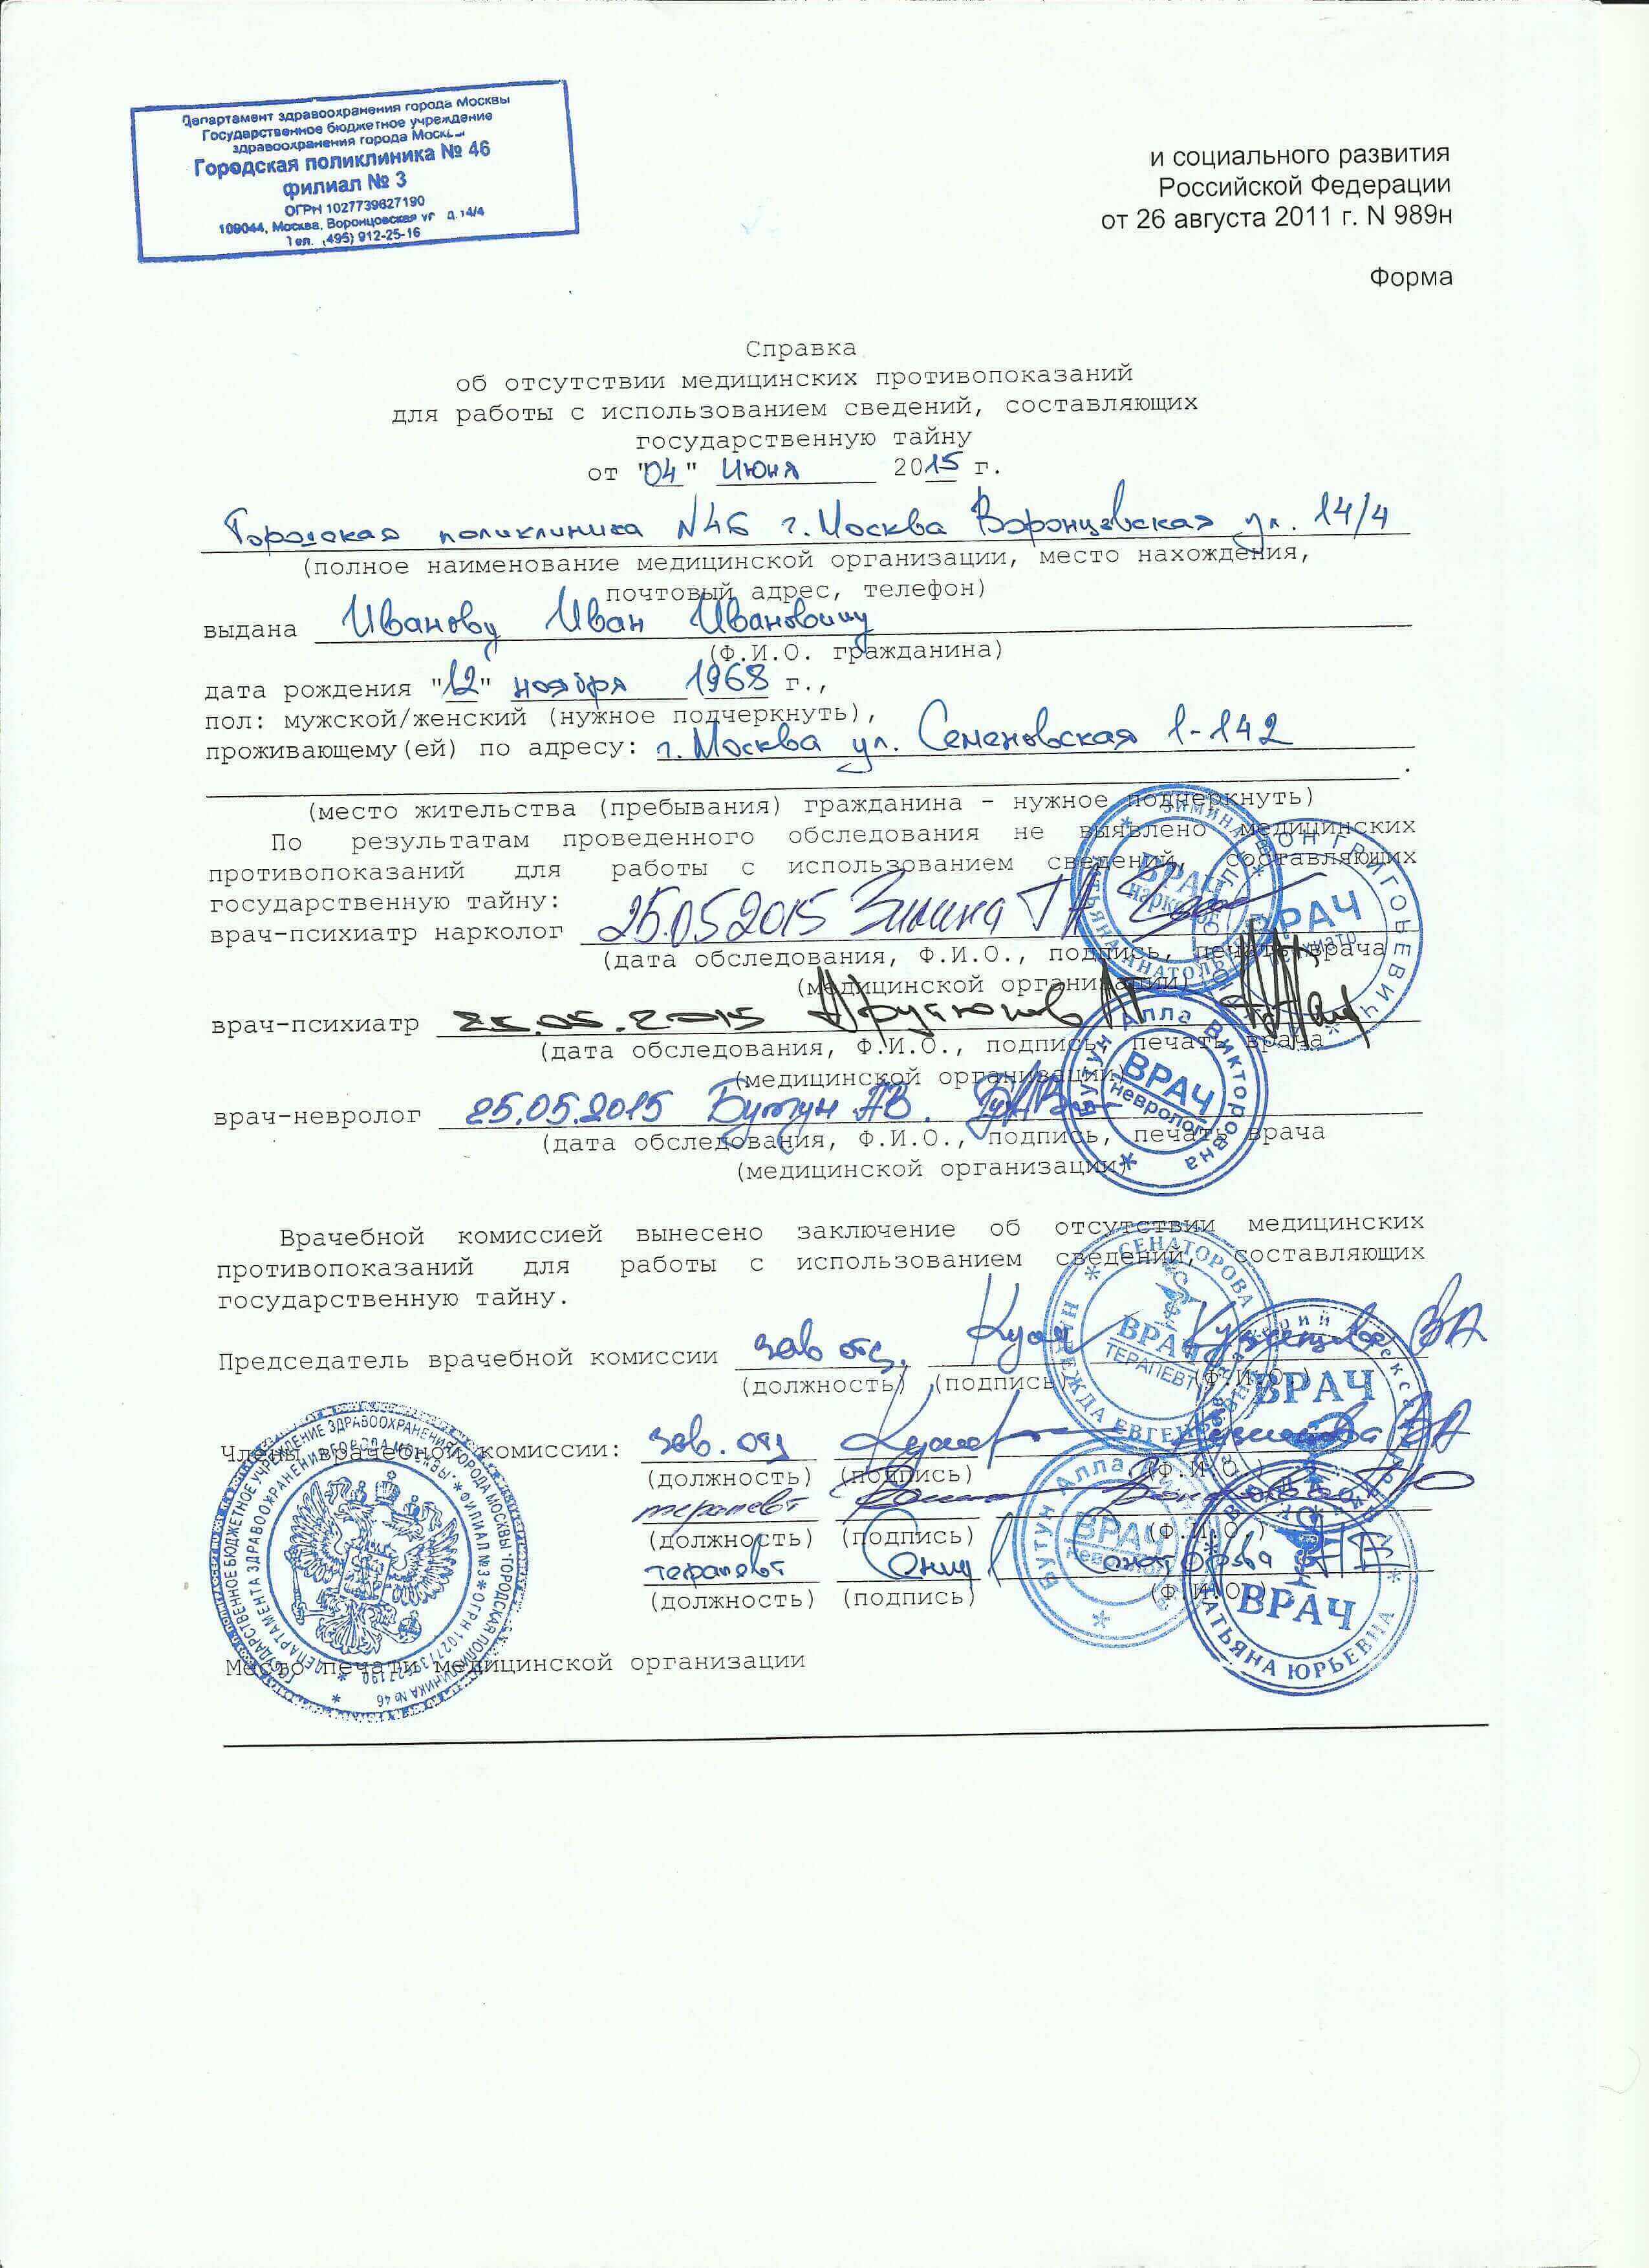 Департамент здравоохранения города Москвы
Государственное бюджетное учреждение
здравоохранения города Москвы
Городская поликлиника № 46
филиал № 3
ОГРН 1027739627190
109044, Москва, Воронцовская ул. д.14/4
Тел. (495) 912-25-16
и социального развития
Российской Федерации
от 26 августа 2011 г. N 989н
Форма
Справка
об отсутствии медицинских противопоказаний
для работы с использованием сведений, составляющих
государственную тайну
от "04" июня 2015 г.
Городская поликлиника N46 г. Москва Воронцовская ул. 14/4
(полное наименование медицинской организации, место нахождения,
почтовый адрес, телефон)
выдана Иванову Иван Ивановичу
(Ф.И.О. гражданина)
дата рождения "12" ноября 1968 г.,
пол: мужской/женский (нужное подчеркнуть),
проживающему(ей) по адресу: г. Москва ул. Семеновская 1-142
(место жительства (пребывания) гражданина - нужное подчеркнуть)
По результатам проведенного обследования не выявлено медицинских
противопоказаний для работы с использованием сведений, составляющих
государственную тайну:
врач-психиатр нарколог 25.05.2015 Зимина ТА
(дата обследования, Ф.И.О., подпись, печать врача
(медицинской организации)
врач-психиатр 25.05.2015
(дата обследования, Ф.И.О., подпись, печать врача
(медицинской организации)
врач-невролог 25.05.2015 Бутун АВ.
(дата обследования, Ф.И.О., подпись, печать врача
(медицинской организации)
ЗИМИНА ТАТЬЯНА АНАТОЛЬЕВНА
ВРАЧ
нарколог
ГРИГОРЬЕВИЧ
ВРАЧ
психиатр
Бутун Алла Викторовна
ВРАЧ
невролог
Врачебной комиссией вынесено заключение об отсутствии медицинских
противопоказаний для работы с использованием сведений, составляющих
государственную тайну.
Председатель врачебной комиссии зав отд. Кузнецова ВА
(должность) (подпись) (Ф.И.О.)
Члены врачебной комиссии: зав. отд Кузнецова ВА
(должность) (подпись) (Ф.И.О.)
терапевт
(должность) (подпись) (Ф.И.О.)
терапевт Сенаторова НЕ
(должность) (подпись) (Ф.И.О.)
СЕНАТОРОВА НАДЕЖДА ЕВГЕНЬЕВНА
ВРАЧ
ТЕРАПЕВТ
ВРАЧ
Бутун Алла
ВРАЧ
невролог
ТАТЬЯНА ЮРЬЕВНА
ВРАЧ
ГОСУДАРСТВЕННОЕ БЮДЖЕТНОЕ УЧРЕЖДЕНИЕ ЗДРАВООХРАНЕНИЯ ГОРОДА МОСКВЫ "ГОРОДСКАЯ ПОЛИКЛИНИКА № 46
ДЕПАРТАМЕНТА ЗДРАВООХРАНЕНИЯ ГОРОДА МОСКВЫ" * ФИЛИАЛ №3 * ОГРН 1027739627190 *
Место печати медицинской организации